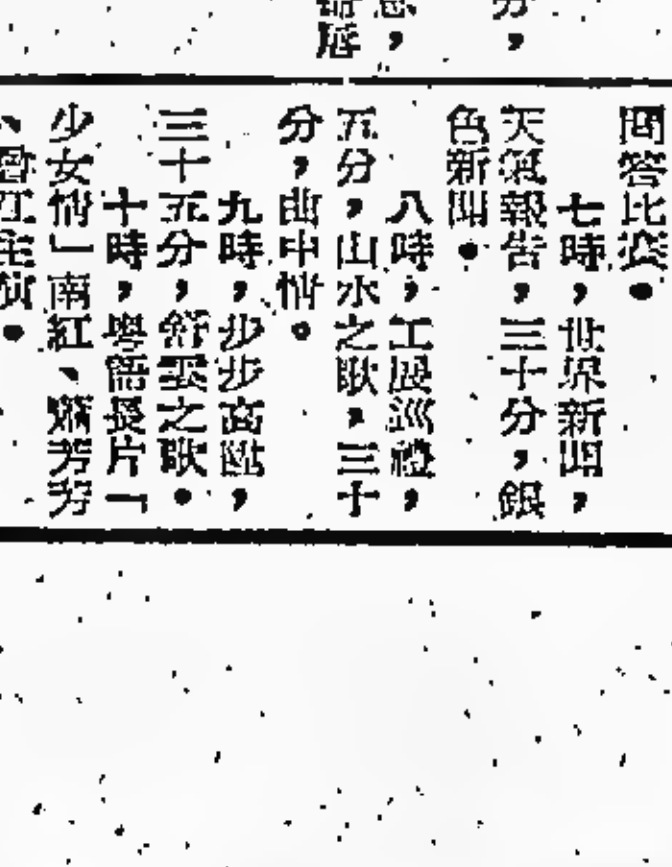 分，
問答比賽。
七時，世界新聞，
天氣報告，三十分，銀
色新聞。
八時，工展巡禮，
五分，山水之歌，三十
分，曲中情。
九時，步步高陞，
三十五分，舒雲之歌。
十時，粵語長片「
少女情」南紅、蕭芳芳
、曾江主演。